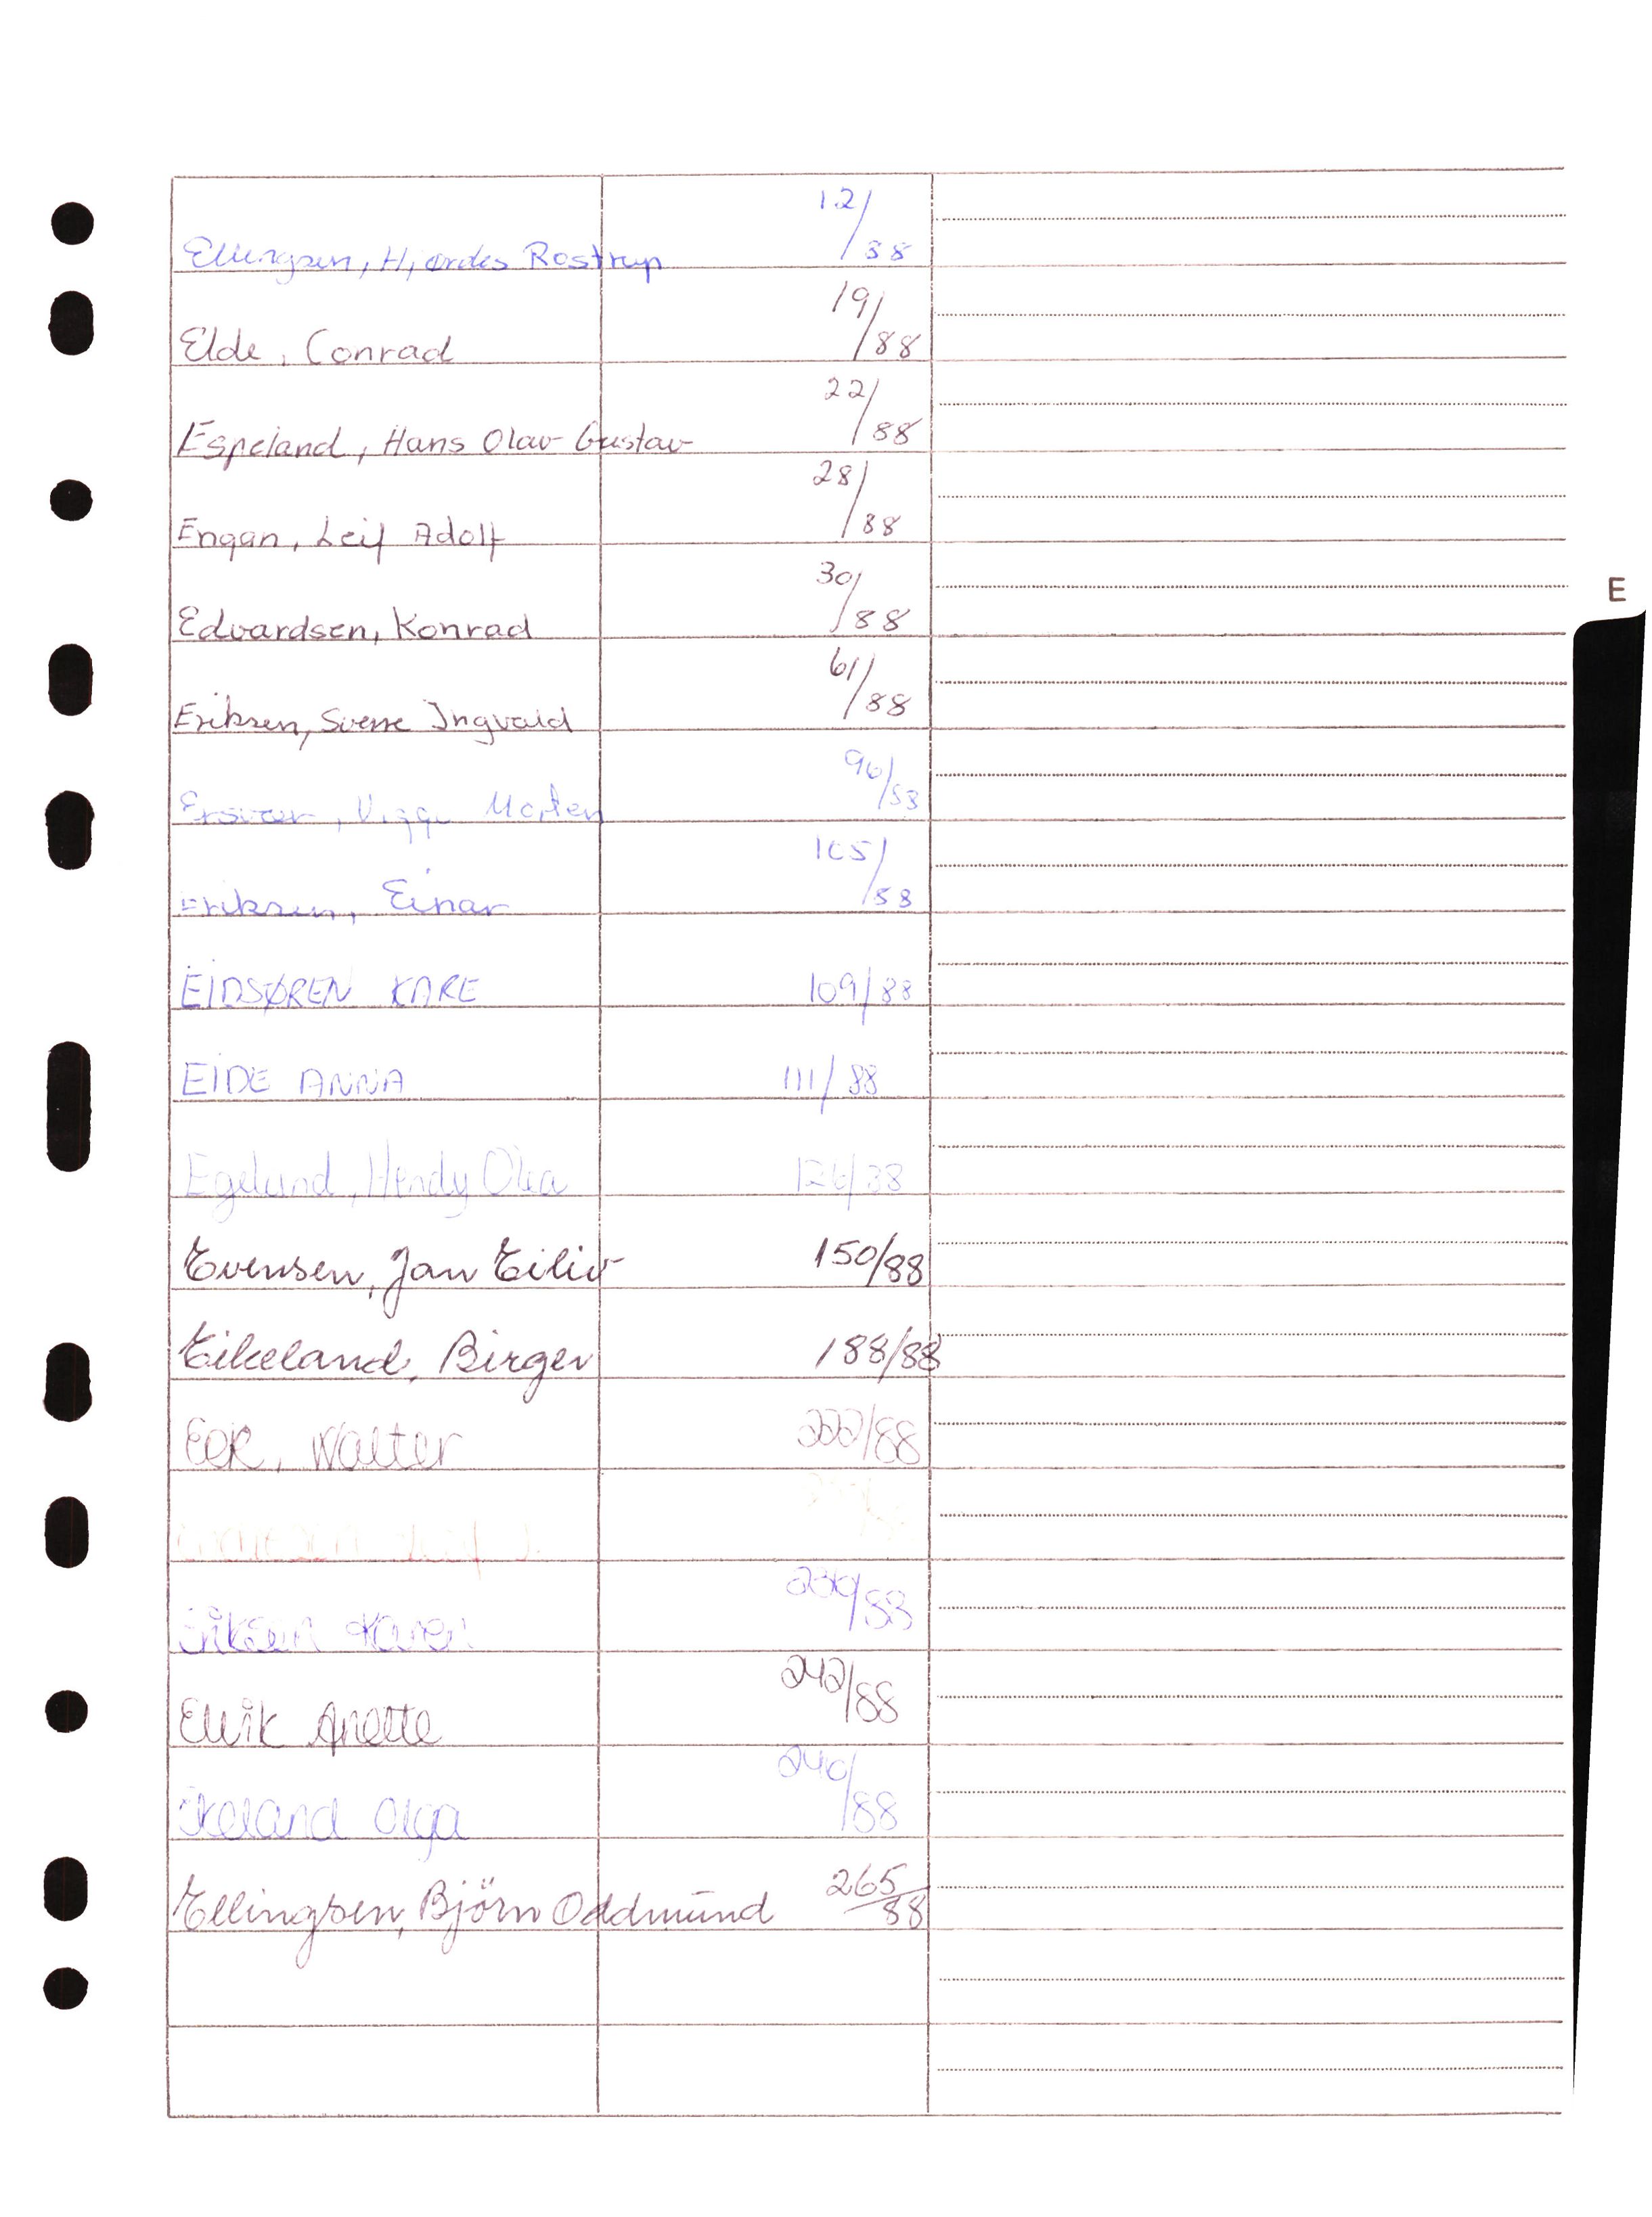 Ellingsen, Hjørdis Rostrup 12/88
Elde, Conrad 19/88
Espeland, Hans Olav Gustav 22/88
Engan, Leif Adolf 28/88
Edvardsen, Konrad 30/88
E
Eriksen, Sverre Ingvald 61/88
Viggo Morten 96/88
Eriksen, Einar 105/88
EIDSØREN KARE 109/88
EIDE ANNA 111/88
Egelund, Hendy Olea 126/88
Evensen, Jan Eiliv 150/88
Eikeland, Birger 188/88
Eek, Walter 222/88
Eriksen Karen
Ellvik Anette 242/88
Ekeland Olga 240/88
Ellingsen, Björn Oddmund 265/88